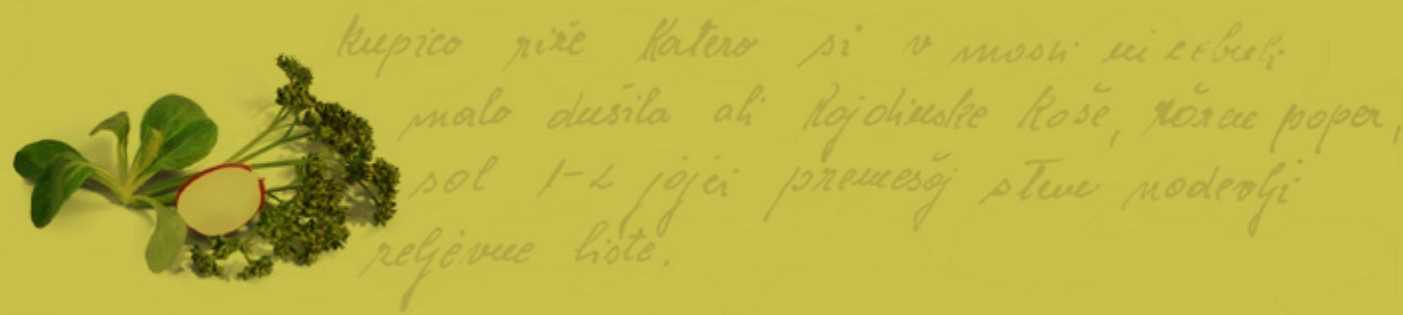 kupico riže katero si v masti in čebuli
malo dušila ali kajdinske kaše, poper,
sol 1-2 jajci premešaj s tem nadevaj
zeljevne liste.